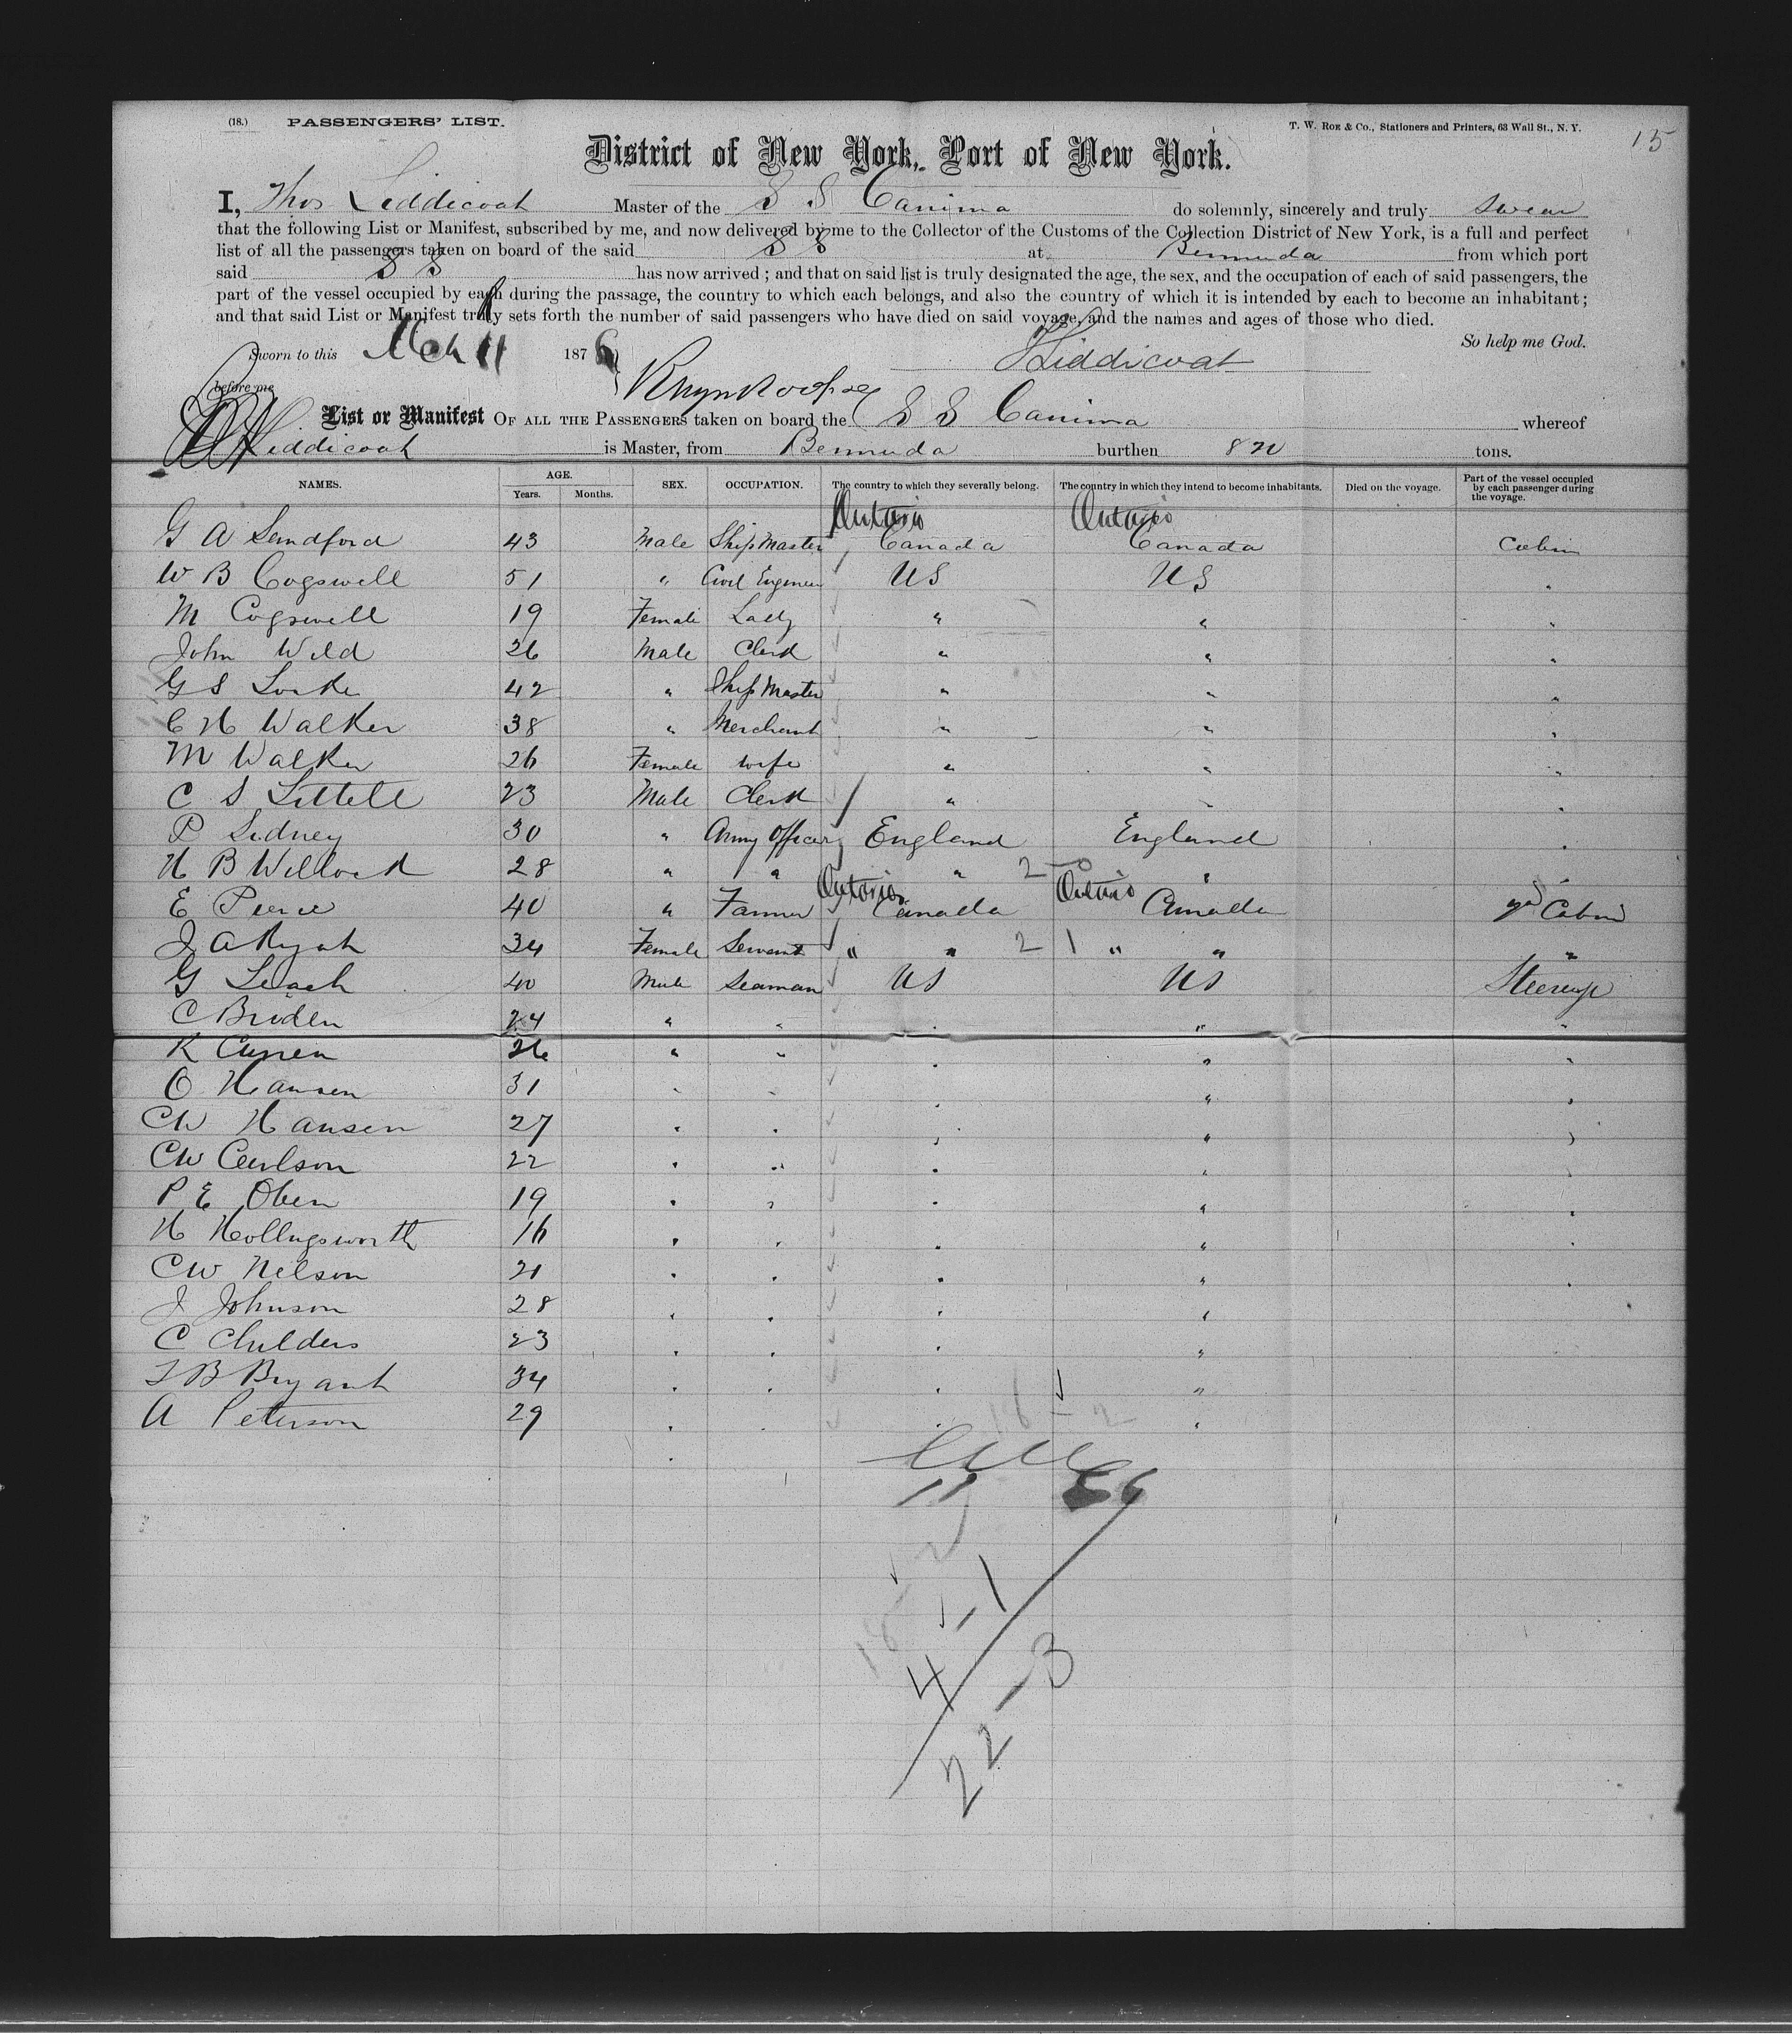 (18.) PASSENGERS' LIST. T. W. Roe & Co., Stationers and Printers, 63 Wall St., N. Y. 15
District of New York, Port of New York.
I, Thos Liddicoat Master of the S S Canima do solemnly, sincerely and truly swear
that the following List or Manifest, subscribed by me, and now delivered by me to the Collector of the Customs of the Collection District of New York, is a full and perfect
list of all the passengers taken on board of the said S S at Bermuda from which port
said S S has now arrived; and that on said list is truly designated the age, the sex, and the occupation of each of said passengers, the
part of the vessel occupied by each during the passage, the country to which each belongs, and also the country of which it is intended by each to become an inhabitant;
and that said List or Manifest truly sets forth the number of said passengers who have died on said voyage, and the names and ages of those who died.
So help me God.
Sworn to this Mch 11 1876 Liddicoat
before me
List or Manifest OF ALL THE PASSENGERS taken on board the S S Canima whereof
Liddicoat is Master, from Bermuda burthen tons.
NAMES. AGE. Years. Months. SEX. OCCUPATION. The country to which they severally belong. The country in which they intend to become inhabitants. Died on the voyage. Part of the vessel occupied by each passenger during the voyage.
Ontario Ontario
G A Sandford 43 Male Ship Master Canada Canada Cabin
W B Cogswell 51 " Civil Engineer US US "
M Cogswell 19 Female Lady " " "
John Wild 26 Male Clerk " " "
G S Locke 42 " Ship Master " " "
C H Walker 38 " Merchant " " "
M Walker 26 Female wife " " "
C S Littell 23 Male Clerk " " "
P Sidney 30 " Army Officer England England "
H B Willock 28 " " " 2 - 0 " "
Ontario Ontario
E Pierce 40 " Farmer Canada Canada 2nd Cabin
J A 34 Female Servant " " 2 1 " " "
G Leach 40 Male Seaman US US Steerage
C Broden 24 " " " " "
K 26 " " " " "
O Hansen 31 " " " " "
CW Hansen 27 " " " " "
CW Carlson 22 " " " " "
P E Olsen 19 " " " " "
H Hollingsworth 16 " " " " "
CW Nelson 21 " " " " "
J Johnson 28 " " " "
C Childers 23 " " " "
T B Bryant 34 " " " "
A Peterson 29 " " " "
18 - 2
11
2
18
4 - 1
22 - 3